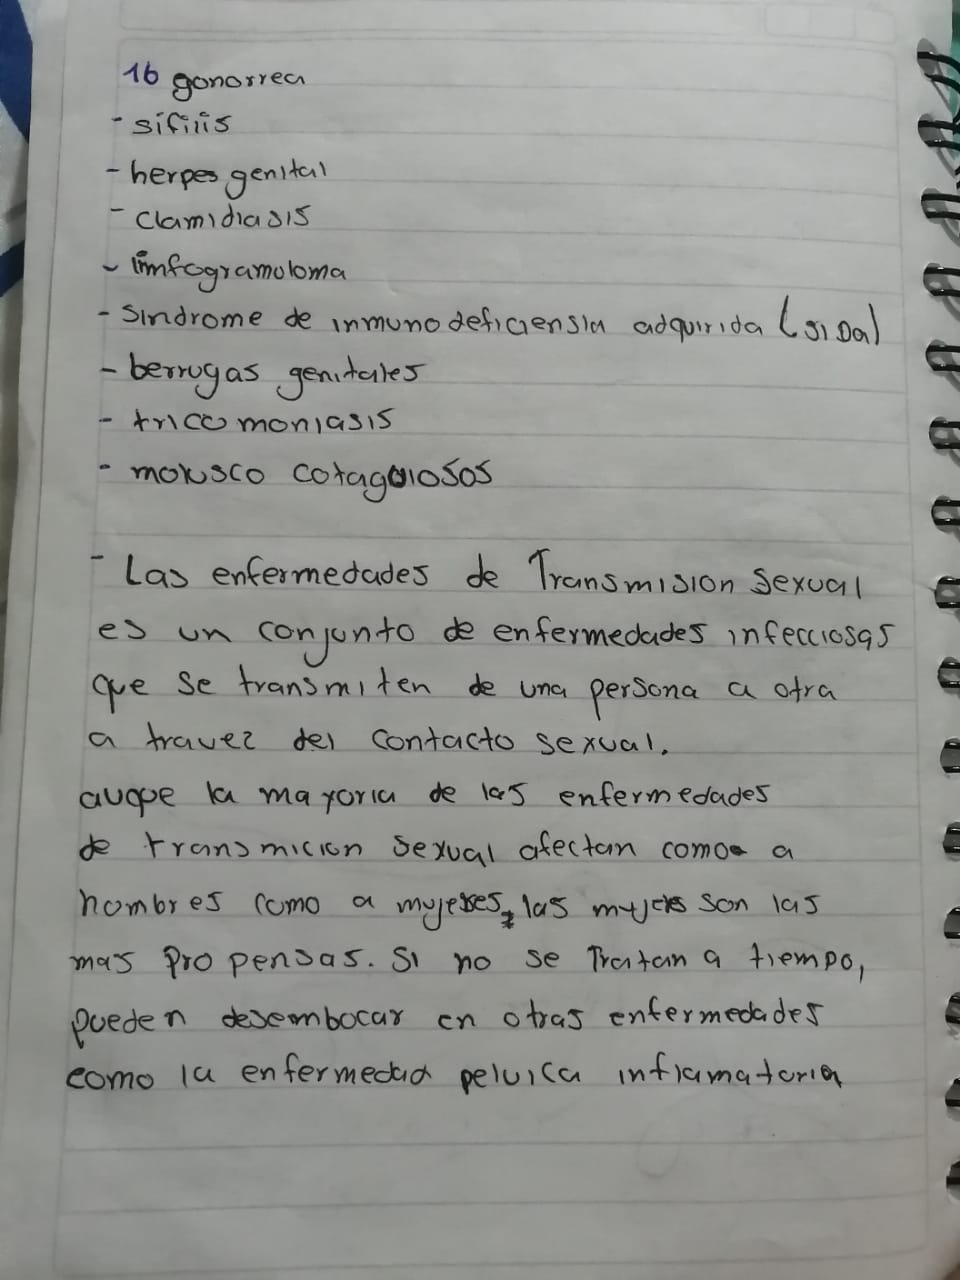 16 gonorrea
- sífilis
- herpes genital
- clamidiasis
- limfogramoloma
- sindrome de inmunodeficiensia adquirida (SIDa)
- berrugas genitales
- tricomoniasis
- molusco cotagoiosos
- Las enfermedades de Transmision sexual
es un conjunto de enfermedades infecciosas
que se transmiten de una persona a otra
a travez del contacto sexual.
auqe la mayoria de las enfermedades
de transmicion sexual afectan como a
hombres como a mujeres, las mujeres son las
mas propensas. Si no se Tratan a tiempo,
pueden desembocar en otras enfermedades
como la enfermedad pelvica inflamatoria